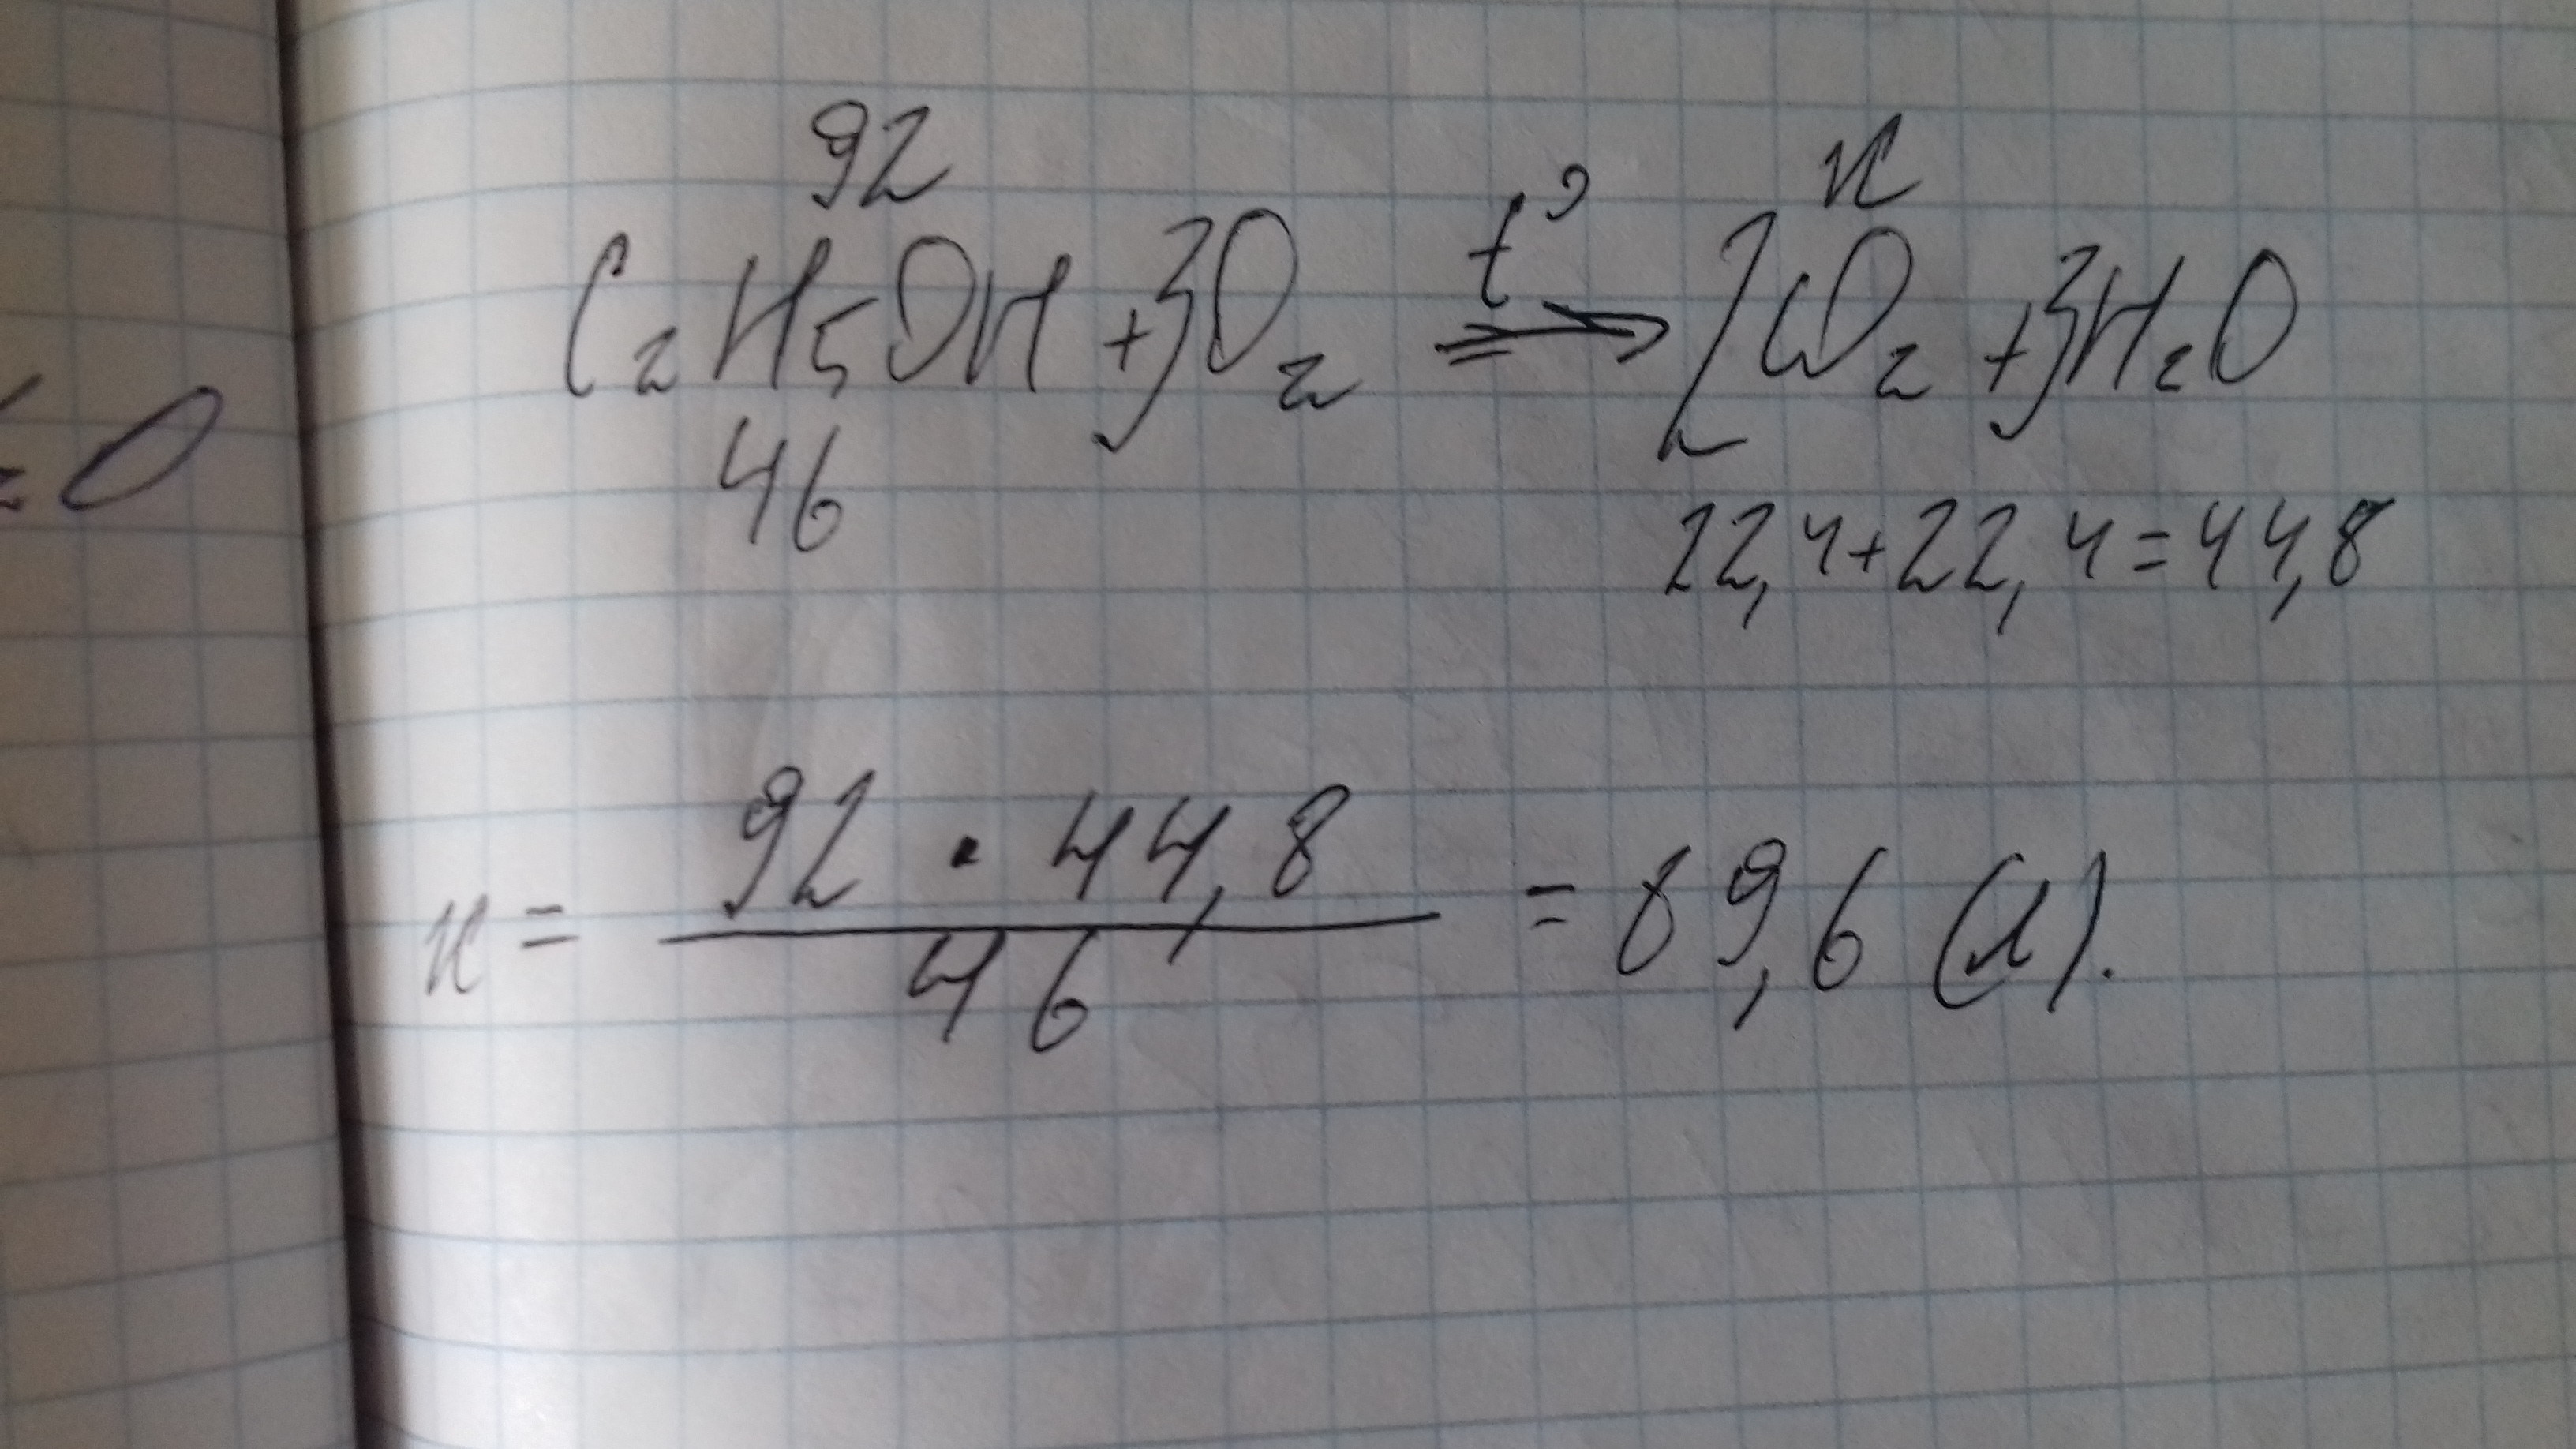 92 x
C₂H₅OH + 3O₂ t° ⇒ 2CO₂ + 3H₂O
46 22,4 + 22,4 = 44,8
x = 92 · 44,8 / 46 = 89,6 (л).